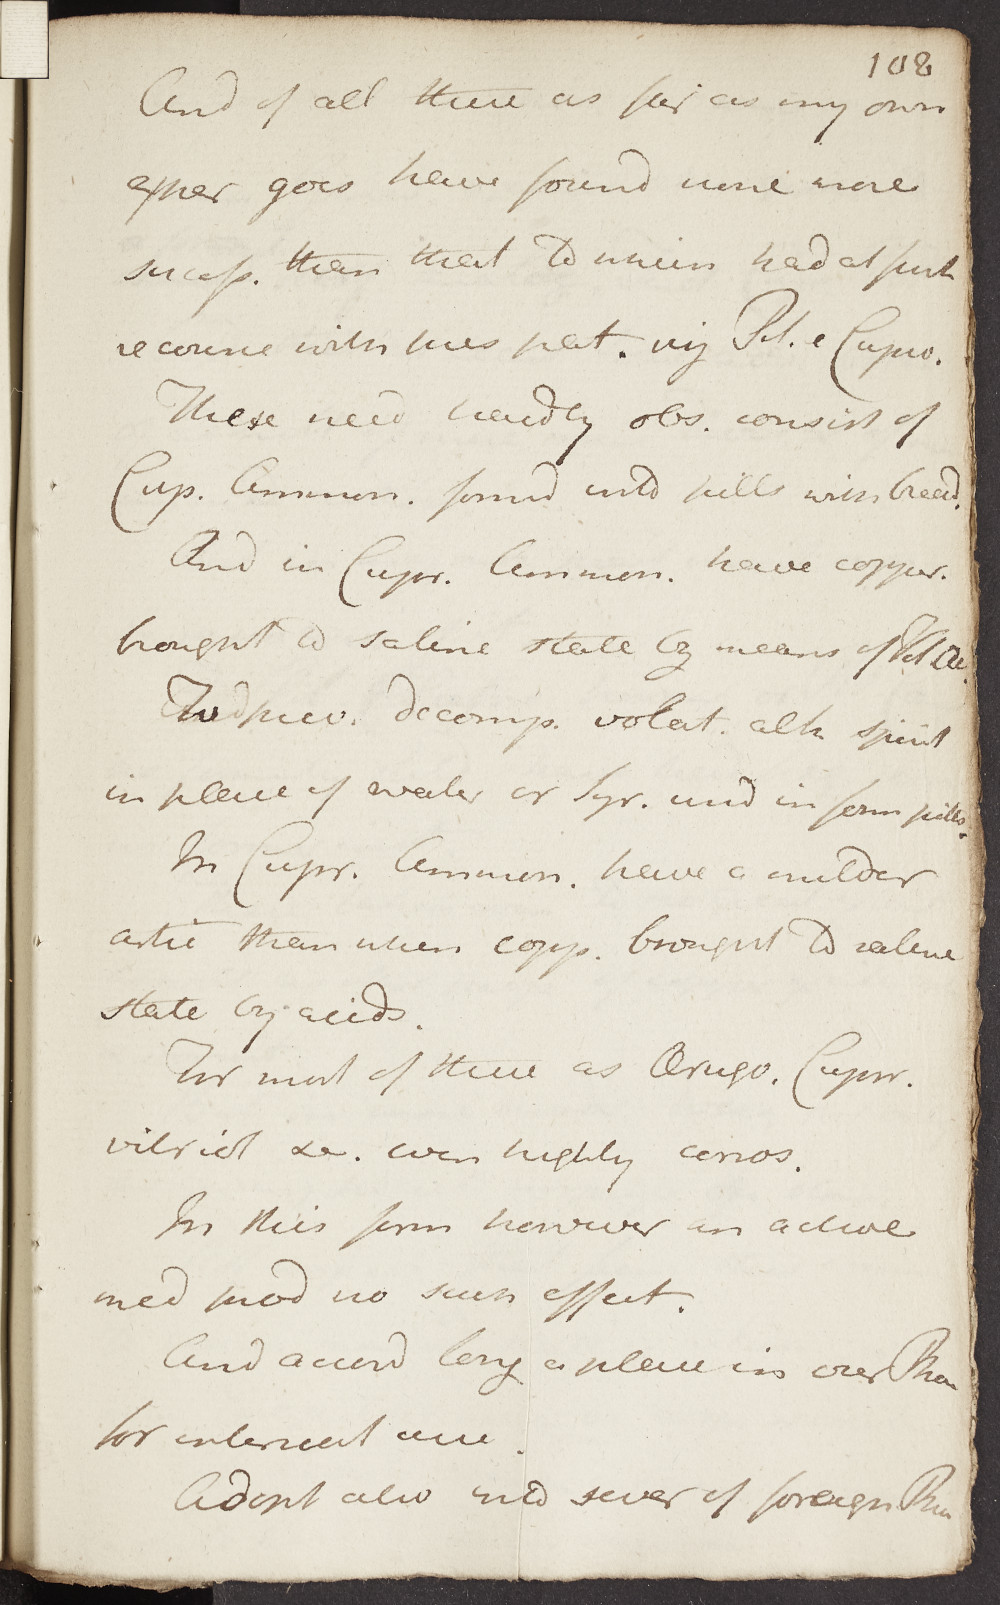 108
And of all these as far as my own
exper goes have found none more
succesf. than that to which had at first
recourse with this pat. viz Pil. e Cupro.
These need hardly obs. consist of
Cup. Ammon. formd into pills with bread.
And in Cupr. Ammon. have copper.
brought to saline state by means of Vol Al.
To prev. decomp. volat. alk spirit
in place of water or Syr. usd in form pills.
In Cupr. Ammon. have a milder
artic than when copp. brought to saline
state by acids.
For most of these as Ærugo. Cupr.
vitriol &c. even highly corros.
In this form however an active
med prod no such effect.
And accord long a place in our Pha
for internal use.
Adopt also into sever of foreign Pha